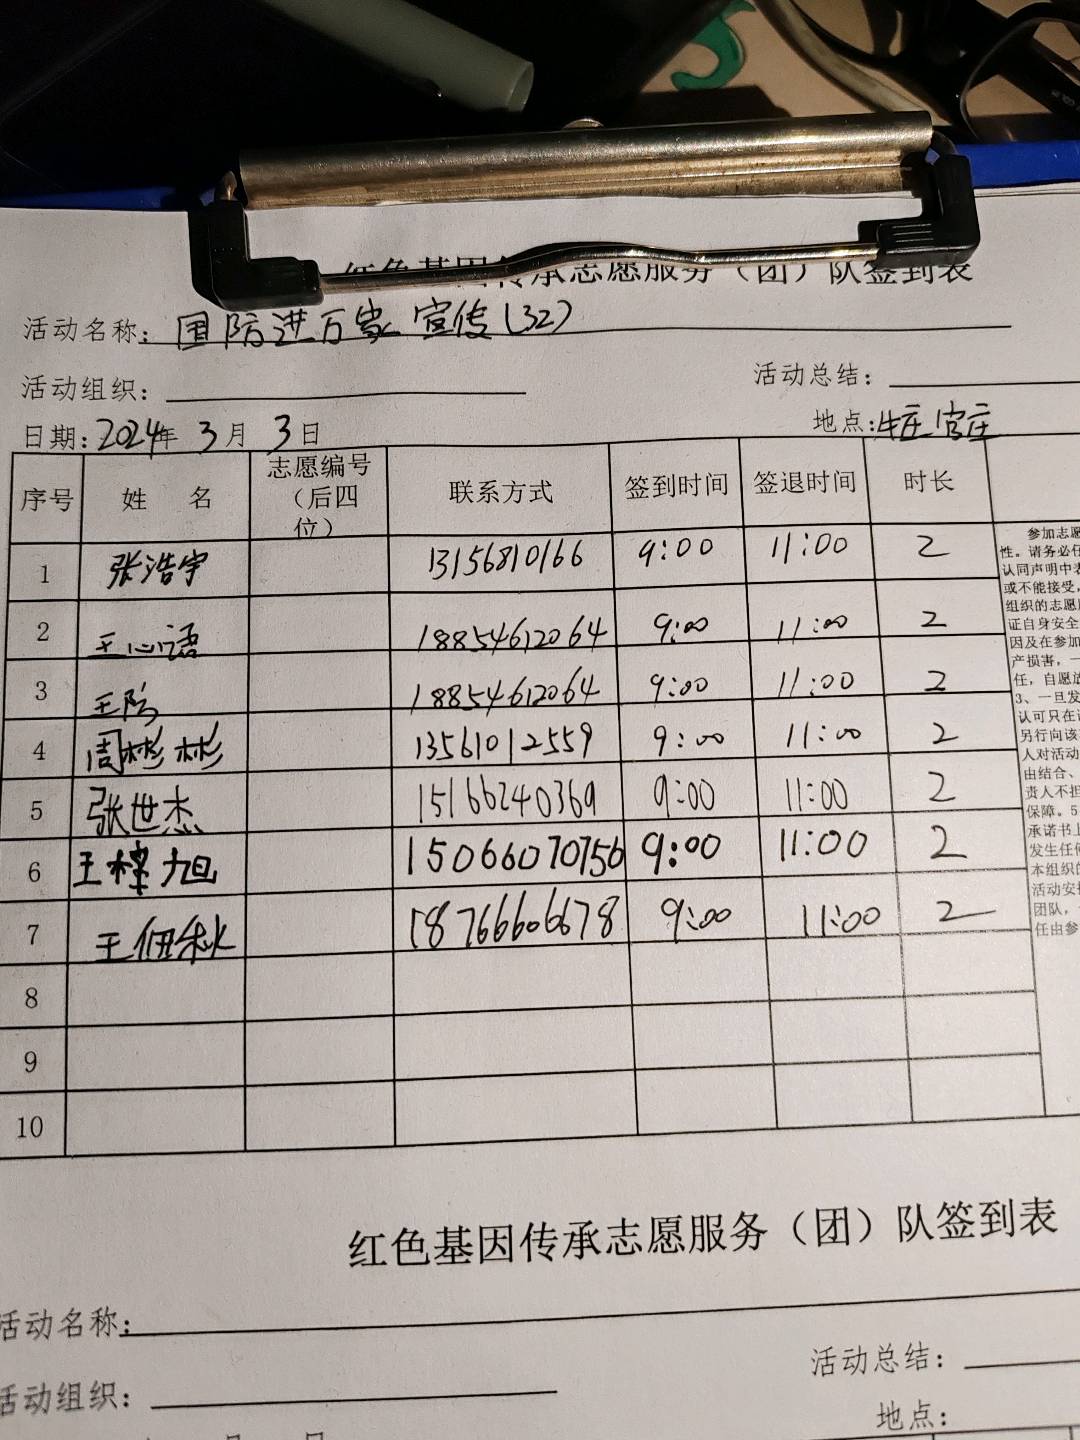 红色基因传承志愿服务（团）队签到表
活动名称：国防进万家宣传（32）
活动组织： 活动总结：
日期：2024年 3月 3日 地点：牛庄官庄
序号 姓 名 志愿编号（后四位） 联系方式 签到时间 签退时间 时长
1 张浩宇 13156810166 9:00 11:00 2
2 王心语 18854612064 9:00 11:00 2
3 王防 18854612064 9:00 11:00 2
4 周彬彬 13561012559 9:00 11:00 2
5 张世杰 15166240369 9:00 11:00 2
6 王梓旭 15066070756 9:00 11:00 2
7 王佃秋 18766606678 9:00 11:00 2
8
9
10
参加志愿
性。请务必仔
认同声明中表
或不能接受，
组织的志愿服
证自身安全
因及在参加
产损害，一
任，自愿放
3、一旦发
认可只在
另行向该
人对活动
由结合、
责人不担
保障。5
承诺书上
发生任何
本组织的
活动安排
团队，
任由参
红色基因传承志愿服务（团）队签到表
活动名称：
活动总结：
活动组织：
地点：
月 日